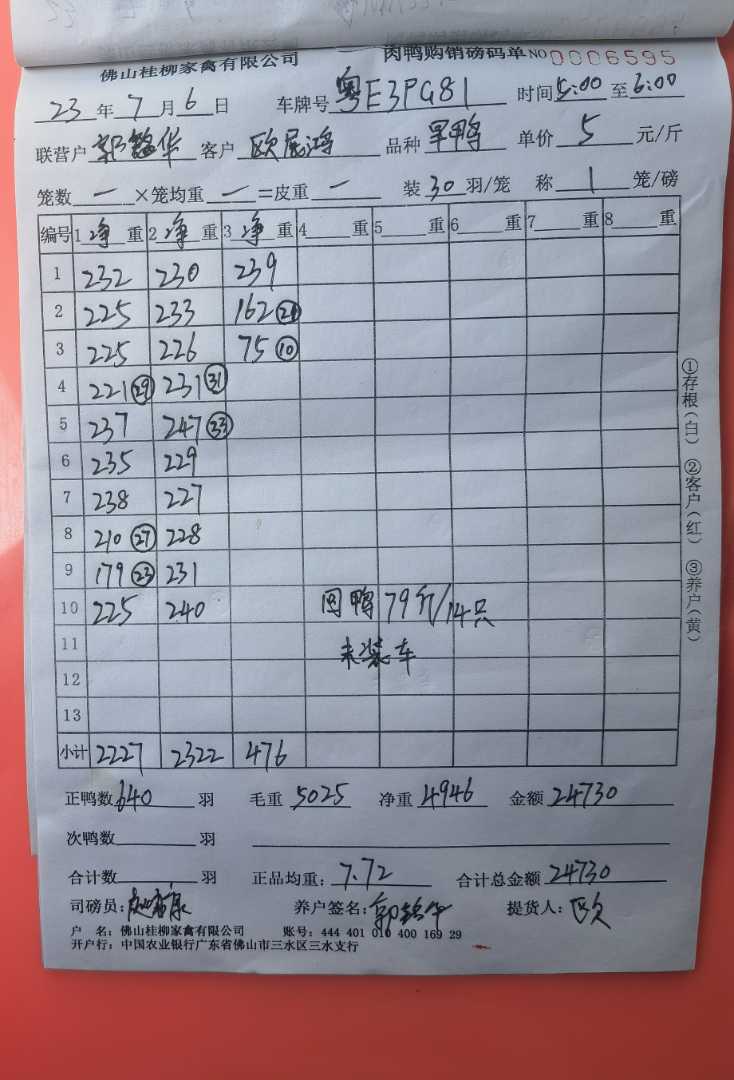 佛山桂柳家禽有限公司 肉鸭购销磅码单 NO 0006595
23 年 7 月 6 日 车牌号 粤E3PG81 时间 5:00 至 6:00
联营户 郭铭华 客户 欧展鸿 品种 旱鸭 单价 5 元/斤
笼数 一 ×笼均重 一 =皮重 一 装 30 羽/笼 称 1 笼/磅
编号 1 净 重 2 净 重 3 净 重 4 重 5 重 6 重 7 重 8 重
1 232 230 239
2 225 233 162 21
3 225 226 75 10
4 221 29 231 31
5 237 247 33
6 235 229
7 238 227
8 210 27 228
9 179 23 231
10 225 240 回鸭 79斤/14只
11 未装车
12
13
小计 2227 2322 476
正鸭数 640 羽 毛重 5025 净重 4946 金额 24730
次鸭数 羽
合计数 羽 正品均重: 7.72 合计总金额 24730
司磅员: 养户签名: 郭铭华 提货人: 欧
户 名: 佛山桂柳家禽有限公司 账号: 444 401 010 400 169 29
开户行: 中国农业银行广东省佛山市三水区三水支行
①存根(白) ②客户(红) ③养户(黄)